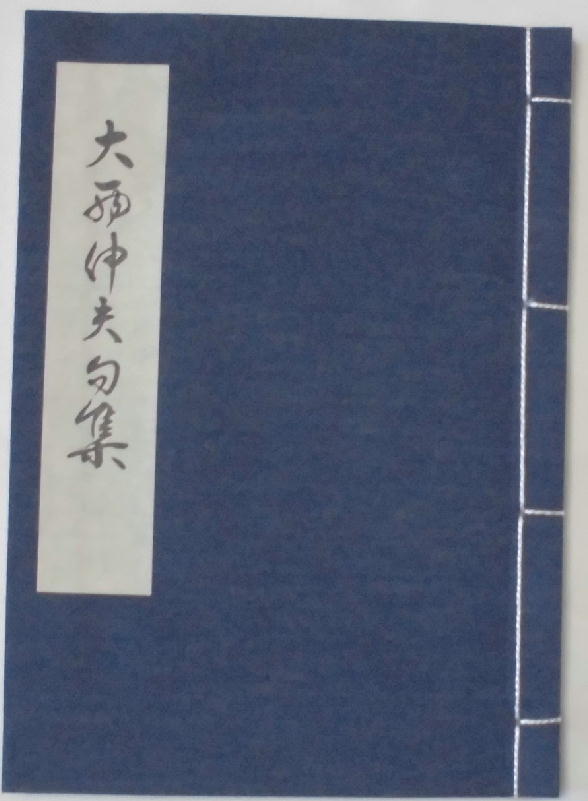 大西仲夫句集